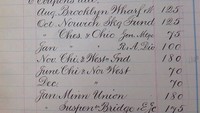 Coupons
Aug Brooklyn Wharf &c 125
Oct Norwich Skg Fund 125
" Ches & Ohio Jan. Mtge 75
Jan " R. A. Div 100
Nov. Chi & West Ind 180
June Chi & Nor West 70
Dec " 70
Jan Minn Union 180
" Suspen Bridge & E Jc 175